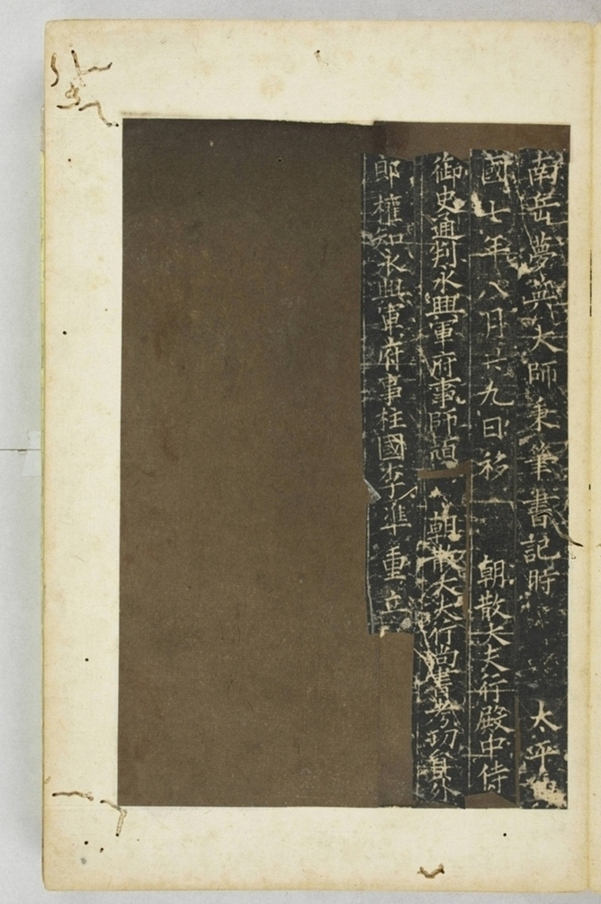 南岳夢英大師秉筆書記時 太平
國七年八月六九日移 朝散大夫行殿中侍
御史通判永興軍府事師頑 朝散大夫行尚書考功員外
郎權知永興軍府事柱國李準重立